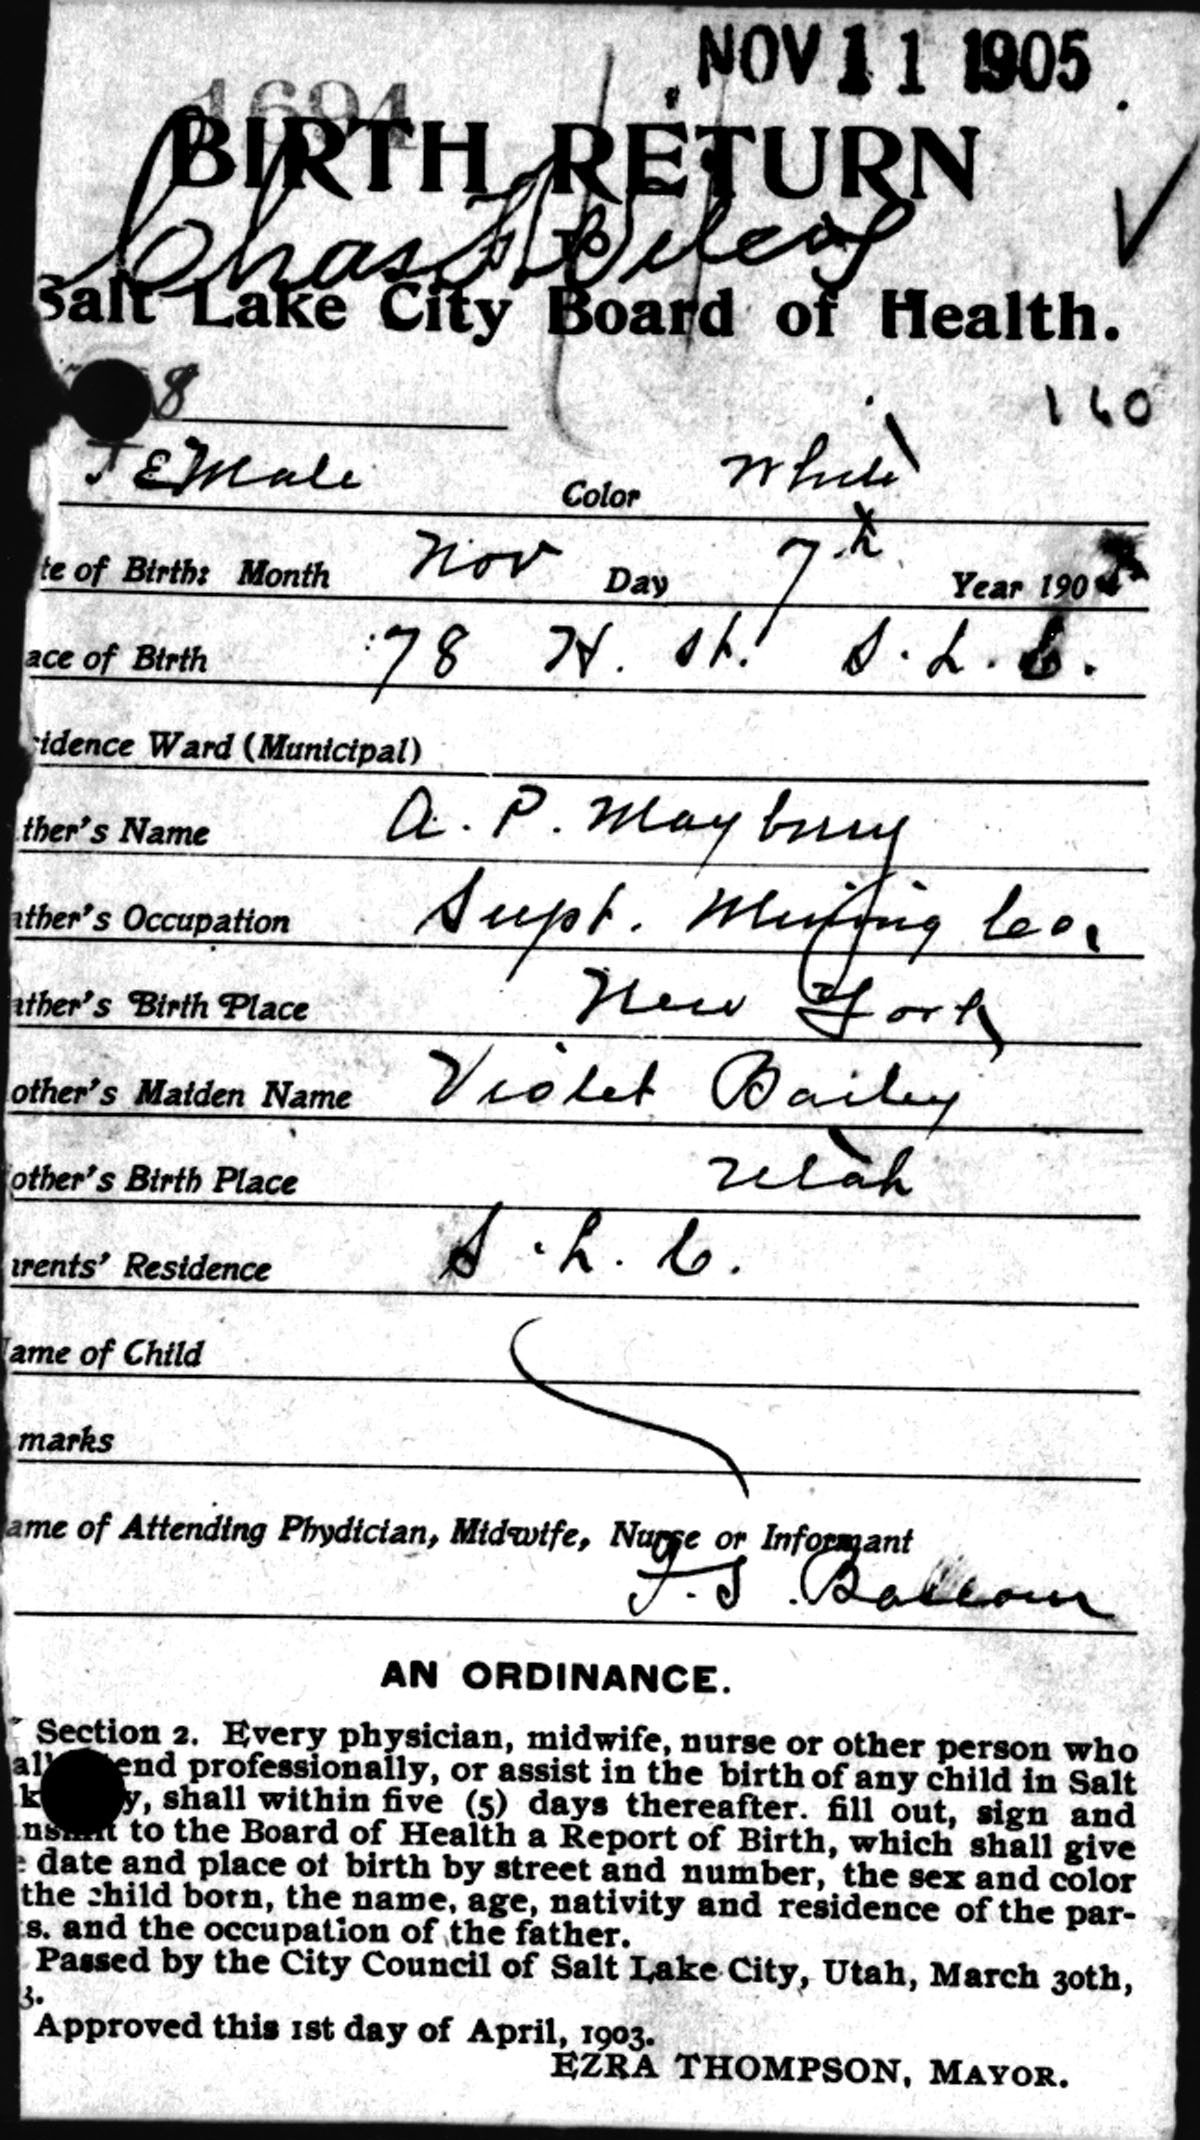 NOV 11 1905
1694
BIRTH RETURN
TO
Salt Lake City Board of Health.
8
160
FEMale Color White
te of Birth: Month Nov Day 7th Year 190
ace of Birth 78 H. St. S. L. C.
idence Ward (Municipal)
ther's Name A. P. Maybury
ather's Occupation Supt. Mining Co.
ather's Birth Place New York
other's Maiden Name Violet Bailey
other's Birth Place Utah
arents' Residence S. L. C.
ame of Child
marks
ame of Attending Phydician, Midwife, Nurse or Informant
AN ORDINANCE.
Section 2. Every physician, midwife, nurse or other person who
all end professionally, or assist in the birth of any child in Salt
k y, shall within five (5) days thereafter. fill out, sign and
nsmit to the Board of Health a Report of Birth, which shall give
e date and place of birth by street and number, the sex and color
the child born, the name, age, nativity and residence of the par-
s. and the occupation of the father.
Passed by the City Council of Salt Lake City, Utah, March 30th,
3.
Approved this 1st day of April, 1903.
EZRA THOMPSON, MAYOR.